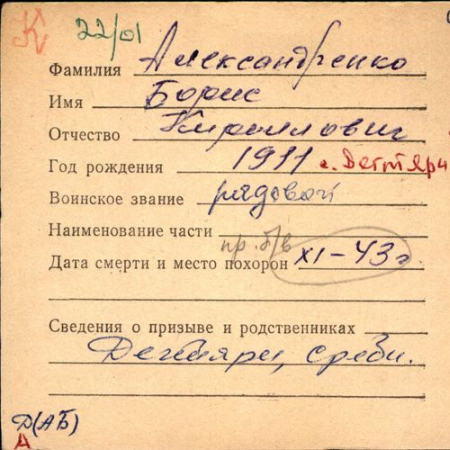 К 22/01
Фамилия Александренко
Имя Борис
Отчество Кириллович
Год рождения 1911 с. Дегтяри
Воинское звание рядовой
Наименование части
пр. б/в
Дата смерти и место похорон XI-43 г.
Сведения о призыве и родственниках
Дегтяри, Среби.
Д(АБ)
А